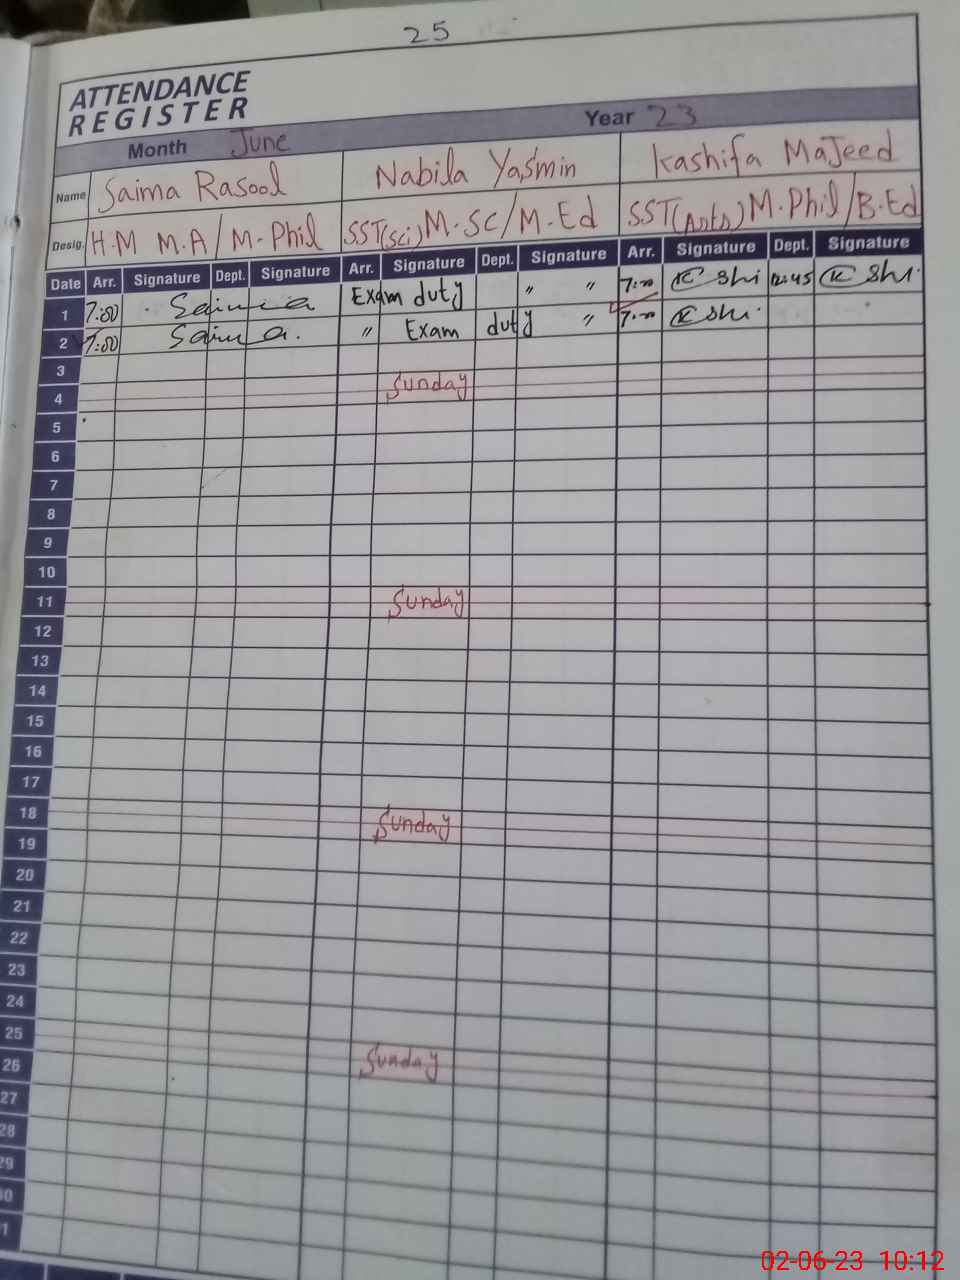 25
ATTENDANCE
REGISTER
Month June Year 23
Name Saima Rasool Nabila Yasmin Kashifa Majeed
Desig. H.M M.A / M.Phil SST(Sci) M.SC/M.Ed SST(Arts) M.Phil/B.Ed
Date Arr. Signature Dept. Signature Arr. Signature Dept. Signature Arr. Signature Dept. Signature
1 7:00 Saima Exam duty " " 7:00 K Shi 12:45 K Shi
2 7:00 Saima. " Exam duty " 7:00 K Shi.
3
4 Sunday
5
6
7
8
9
10
11 Sunday
12
13
14
15
16
17
18 Sunday
19
20
21
22
23
24
25 Sunday
26
27
28
29
30
31
02-06-23 10:12